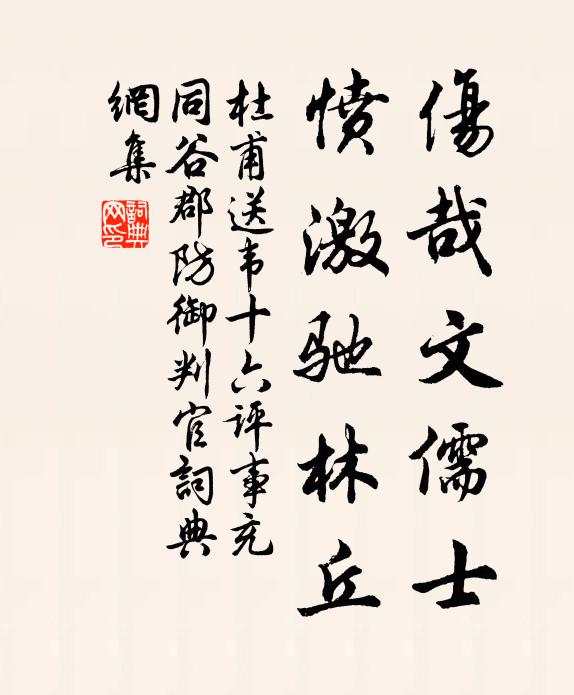 傷哉文儒士
憤激馳林丘
杜甫送韦十六評事充
同谷郡防御判官詞典
網集
詞典网印